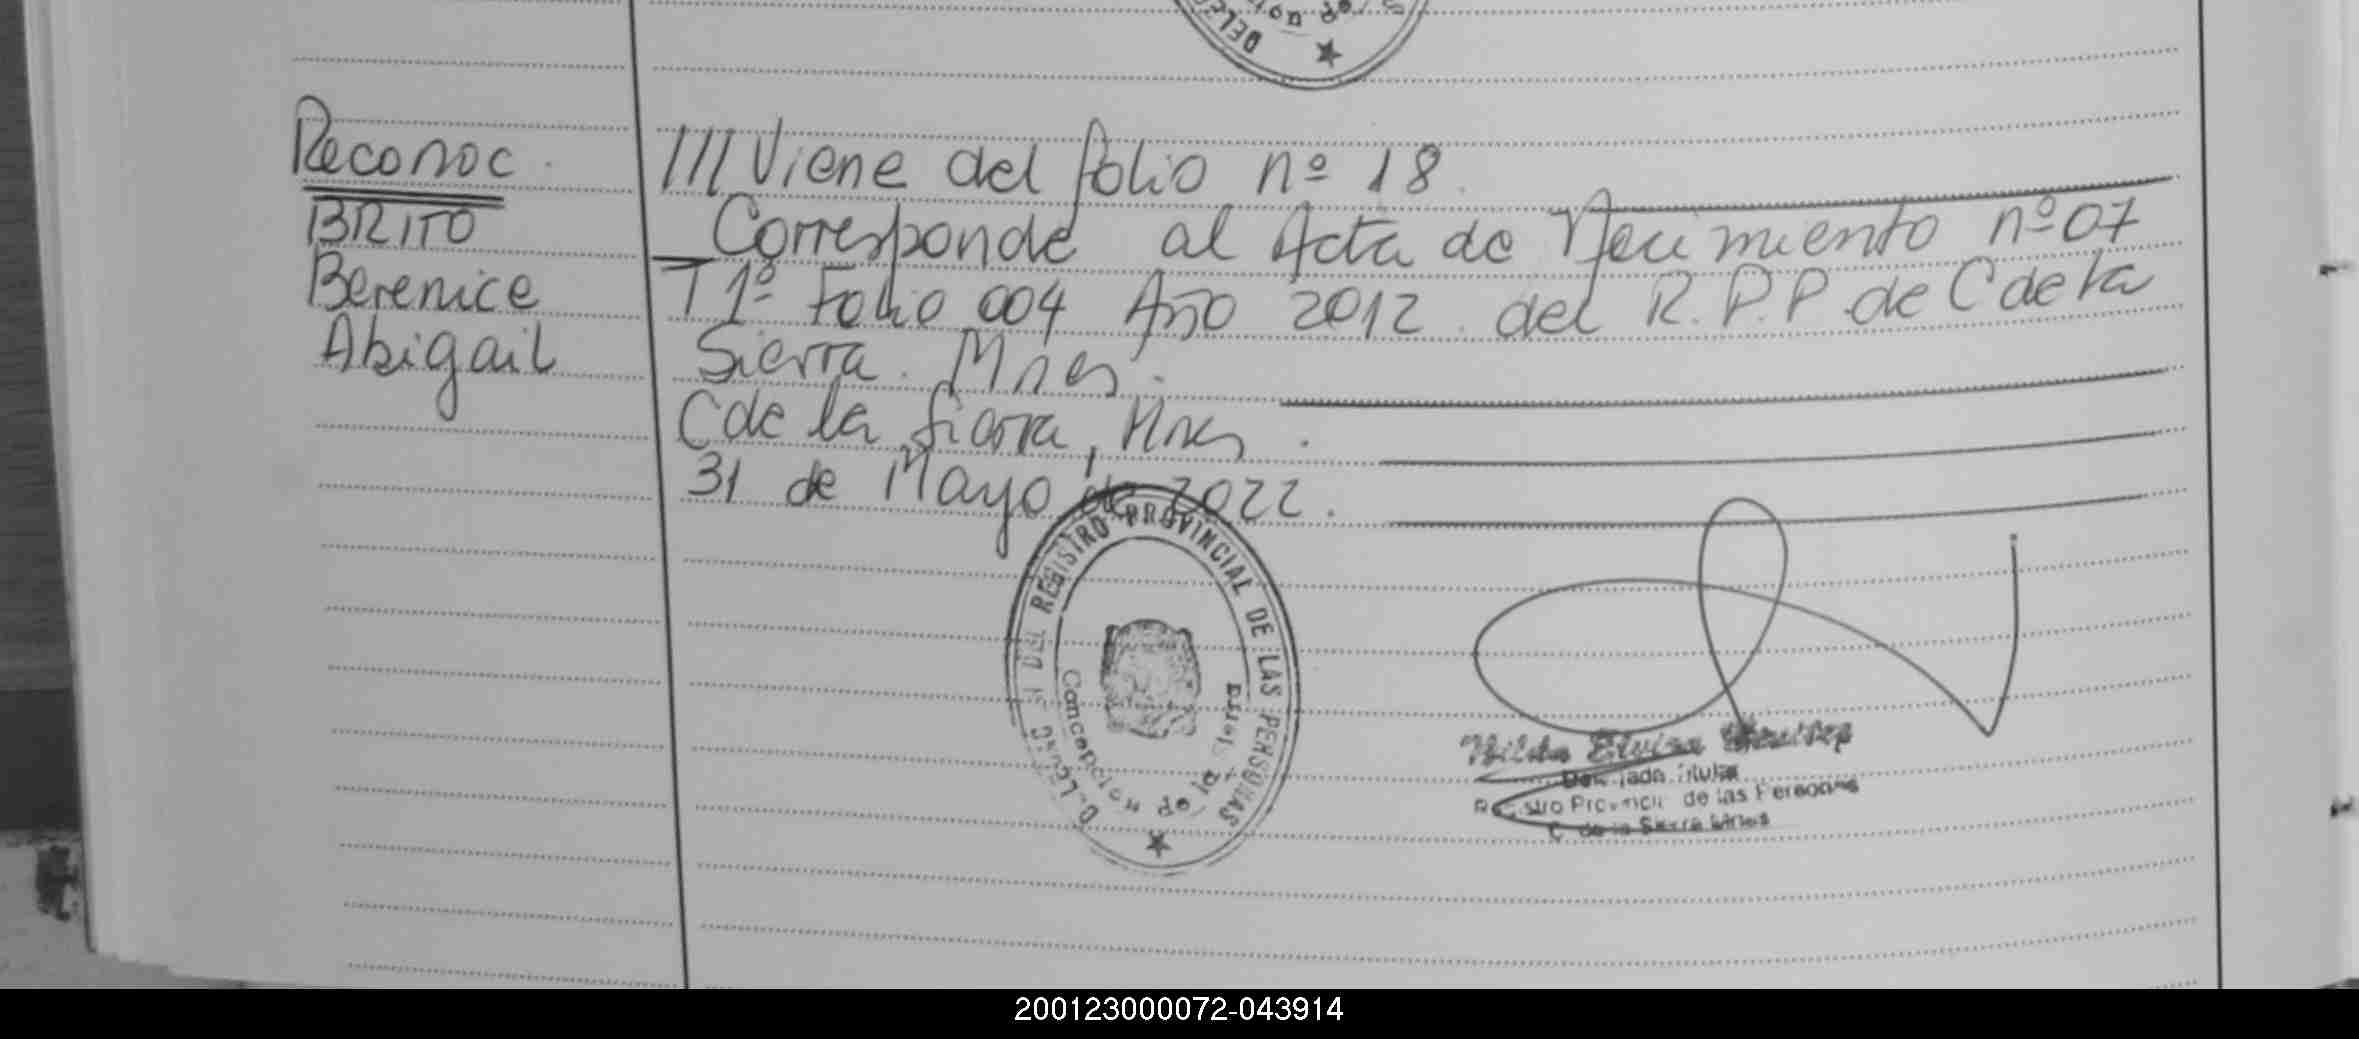 Reconoc.
BRITO
Berenice
Abigail
/// Viene del folio nº 18.
Corresponde al Acta de Nacimiento nº 07
T 1º Folio 004 Año 2012. del R.P.P de C de la
Sierra. Mnes.
C de la Sierra, Mnes.
31 de Mayo de 2022.
DEL REGISTRO PROVINCIAL DE LAS PERSONAS
Concepcion de la Sierra
Hilda
Titular
Registro Provincial de las Personas
C. de la Sierra
200123000072-043914